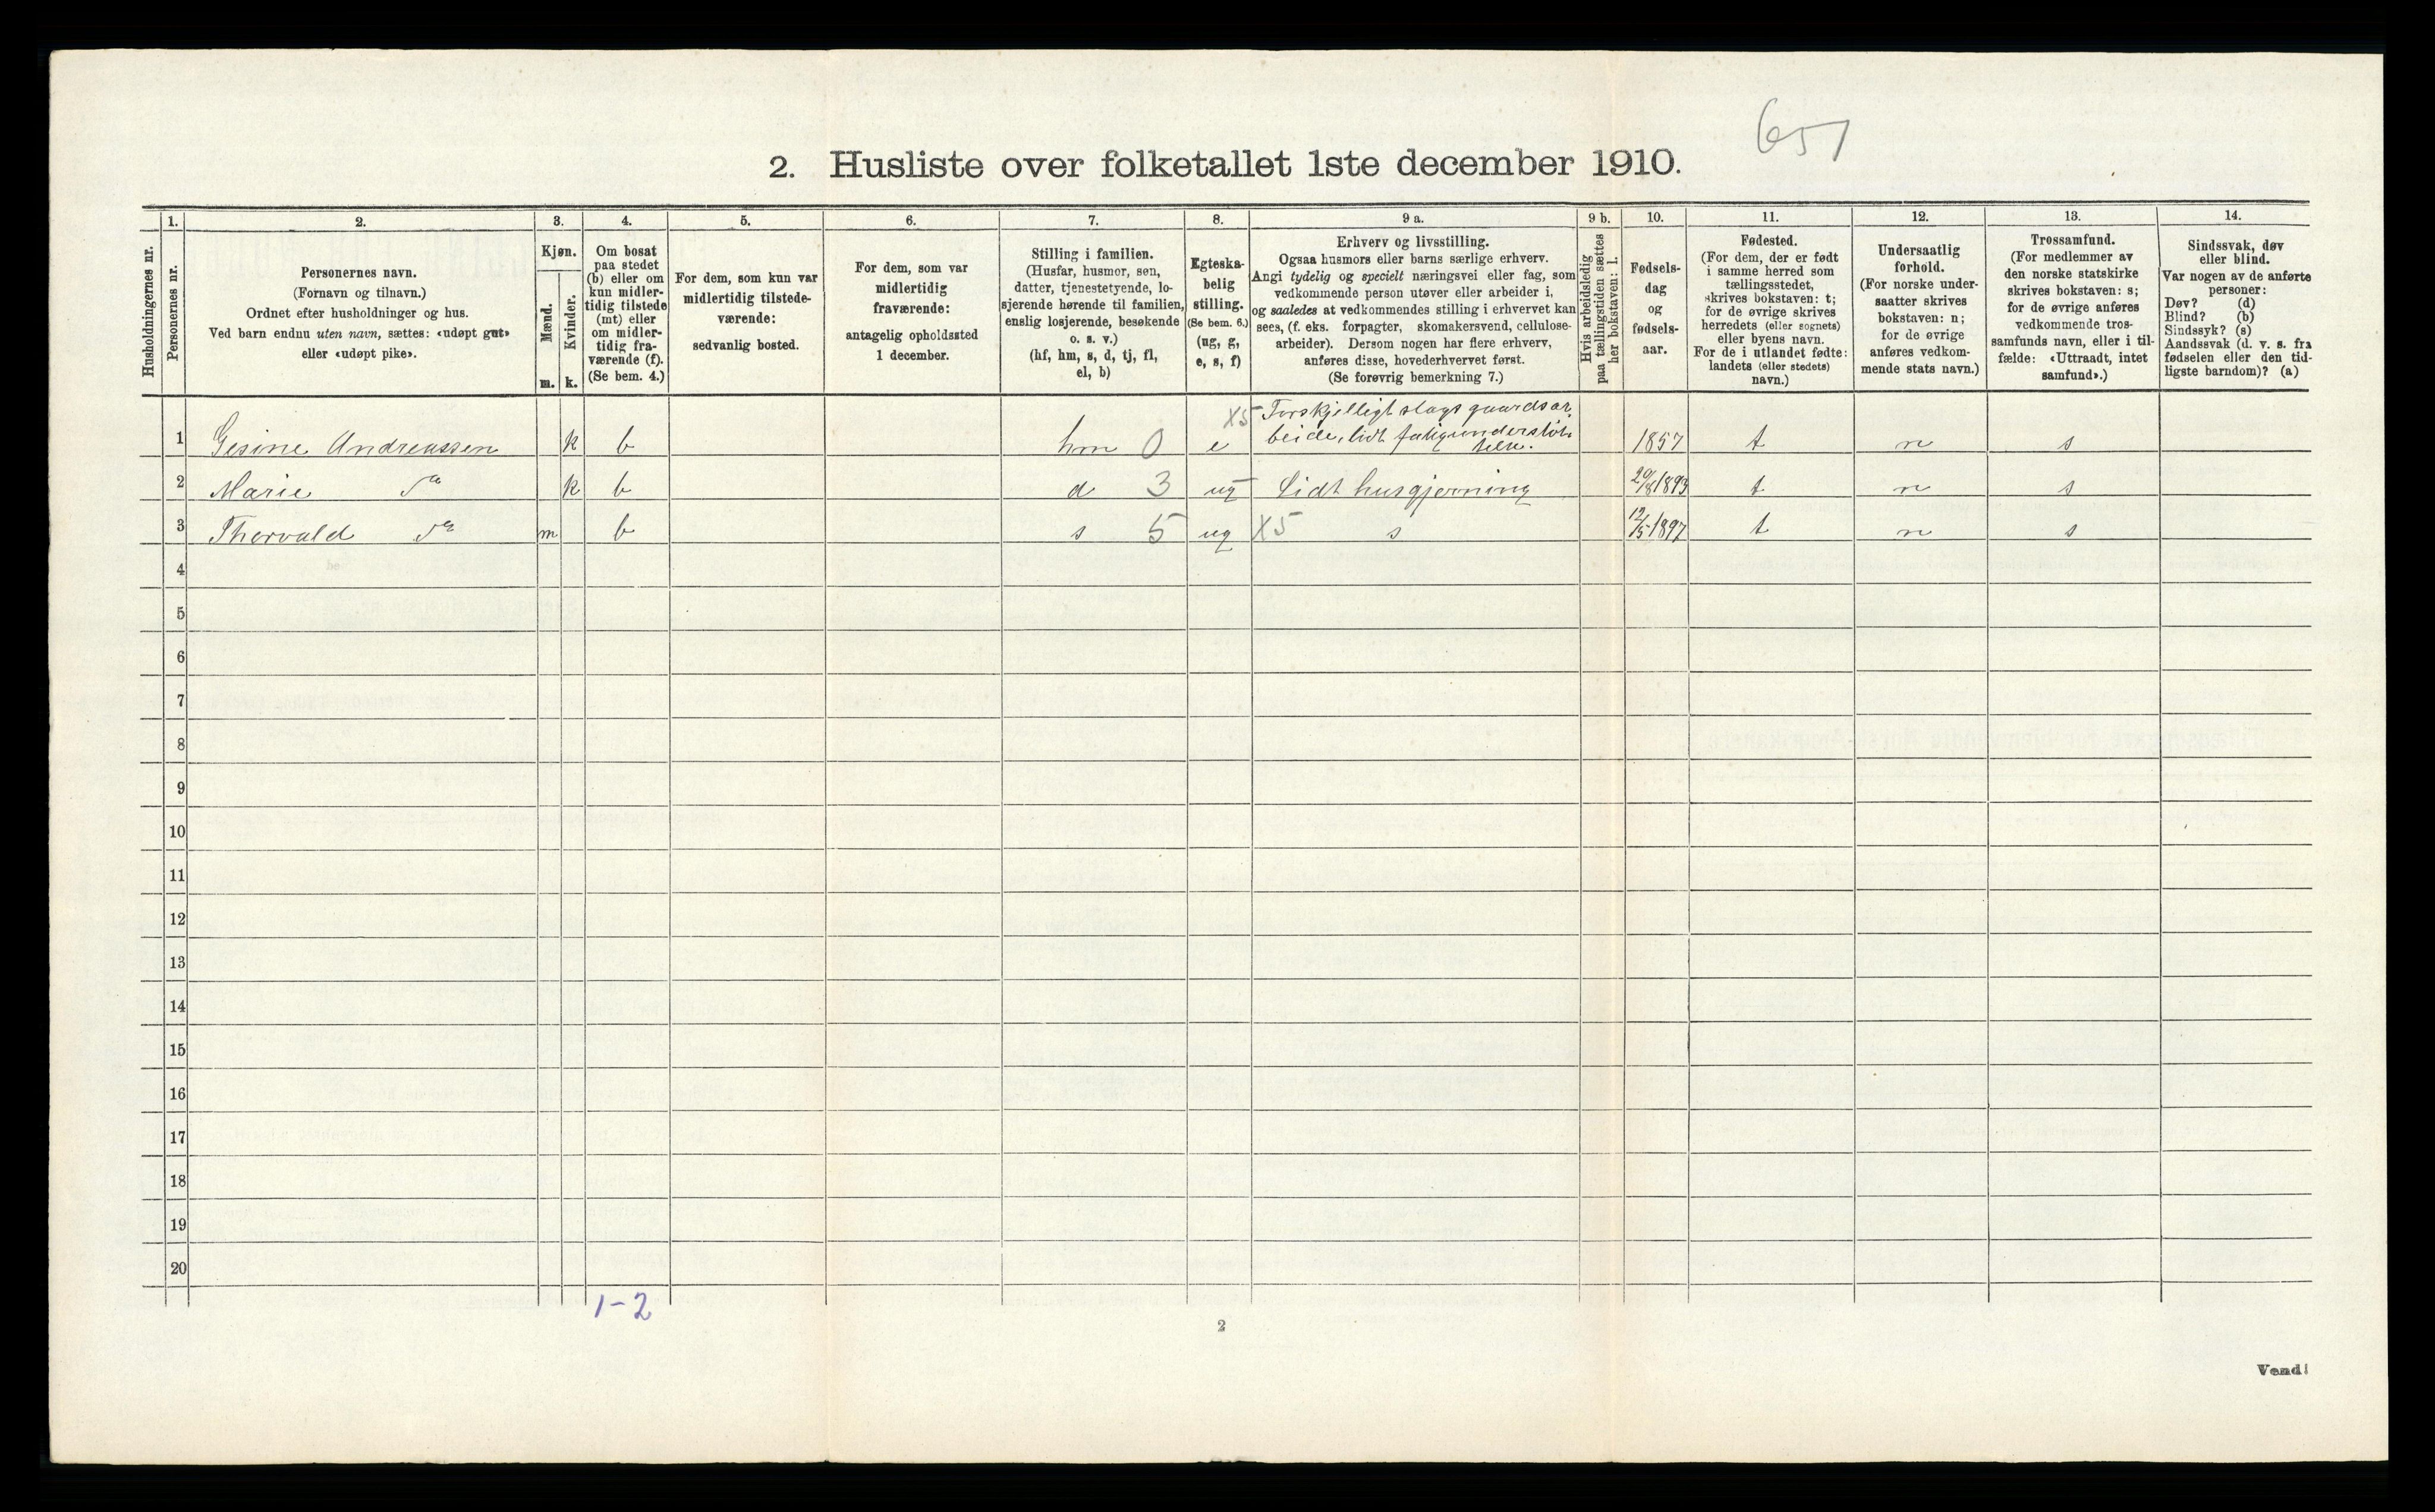 651
2. Husliste over folketallet 1ste december 1910.
Husholdningernes nr.
1.
Personernes nr.
2.
Personernes navn.
(Fornavn og tilnavn.)
Ordnet efter husholdninger og hus.
Ved barn endnu uten navn, sættes: «udøpt gut»
eller «udøpt pike».
3.
Kjøn.
Mænd.
m.
Kvinder.
k.
4.
Om bosat
paa stedet
(b) eller om
kun midler-
tidig tilstede
(mt) eller
om midler-
tidig fra-
værende (f).
(Se bem. 4.)
5.
For dem, som kun var
midlertidig tilstede-
værende:
sedvanlig bosted.
6.
For dem, som var
midlertidig
fraværende:
antagelig opholdssted
1 december.
7.
Stilling i familien.
(Husfar, husmor, søn,
datter, tjenestetyende, lo-
sjerende hørende til familien,
enslig losjerende, besøkende
o. s. v.)
(hf, hm, s, d, tj, fl,
el, b)
8.
Egteska-
belig
stilling.
(Se bem. 6.)
(ug, g,
e, s, f)
9 a.
Erhverv og livsstilling.
Ogsaa husmors eller barns særlige erhverv.
Angi tydelig og specielt næringsvei eller fag, som
vedkommende person utøver eller arbeider i,
og saaledes at vedkommendes stilling i erhvervet kan
sees, (f. eks. forpagter, skomakersvend, cellulose-
arbeider). Dersom nogen har flere erhverv,
anføres disse, hovederhvervet først.
(Se forøvrig bemerkning 7.)
9 b.
Hvis arbeidsledig
paa tællingstiden sættes
her bokstaven: l.
10.
Fødsels-
dag
og
fødsels-
aar.
11.
Fødested.
(For dem, der er født
i samme herred som
tællingsstedet,
skrives bokstaven: t;
for de øvrige skrives
herredets (eller sognets)
eller byens navn.
For de i utlandet fødte:
landets (eller stedets)
navn.)
12.
Undersaatlig
forhold.
(For norske under-
saatter skrives
bokstaven: n;
for de øvrige
anføres vedkom-
mende stats navn.)
13.
Trossamfund.
(For medlemmer av
den norske statskirke
skrives bokstaven: s;
for de øvrige anføres
vedkommende tros-
samfunds navn, eller i til-
fælde: «Uttraadt, intet
samfund».)
14.
Sindssvak, døv
eller blind.
Var nogen av de anførte
personer:
Døv? (d)
Blind? (b)
Sindssyk? (s)
Aandssvak (d. v. s. fra
fødselen eller den tid-
ligste barndom)? (a)
X5 Forskjelligt slags gaardsar-
beide, lidt fatigunderstøt-
telse.
1 Gesine Andreassen k b hm 0 e 1857 t n s
2 Marie do k b d 3 ug Lidt husgjerning 20/8 1893 t n s
3 Thorvald do m b s 5 ug X5 s 12/5 1897 t n s
4
5
6
7
8
9
10
11
12
13
14
15
16
17
18
19
20
1-2
2
Vend!